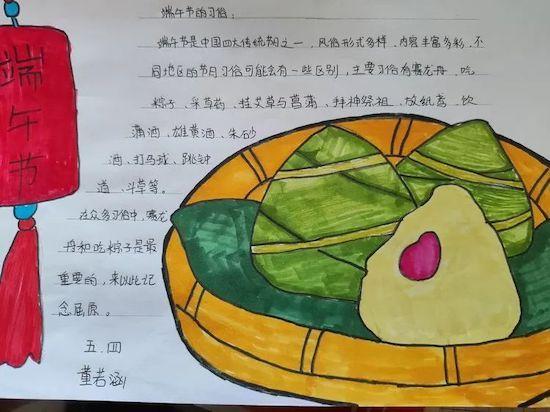 端午节
端午节的习俗:
端午节是中国四大传统节日之一,风俗形式多样,内容丰富多彩,不
同地区的节日习俗可能会有一些区别,主要习俗有赛龙舟、吃
粽子、采草药、挂艾草与菖蒲、拜神祭祖、放纸鸢、饮
蒲酒、雄黄酒、朱砂
酒、打马球、跳钟
道、斗草等。
在众多习俗中,赛龙
舟和吃粽子是最
重要的,来以此记
念屈原。
五.四
董若涵